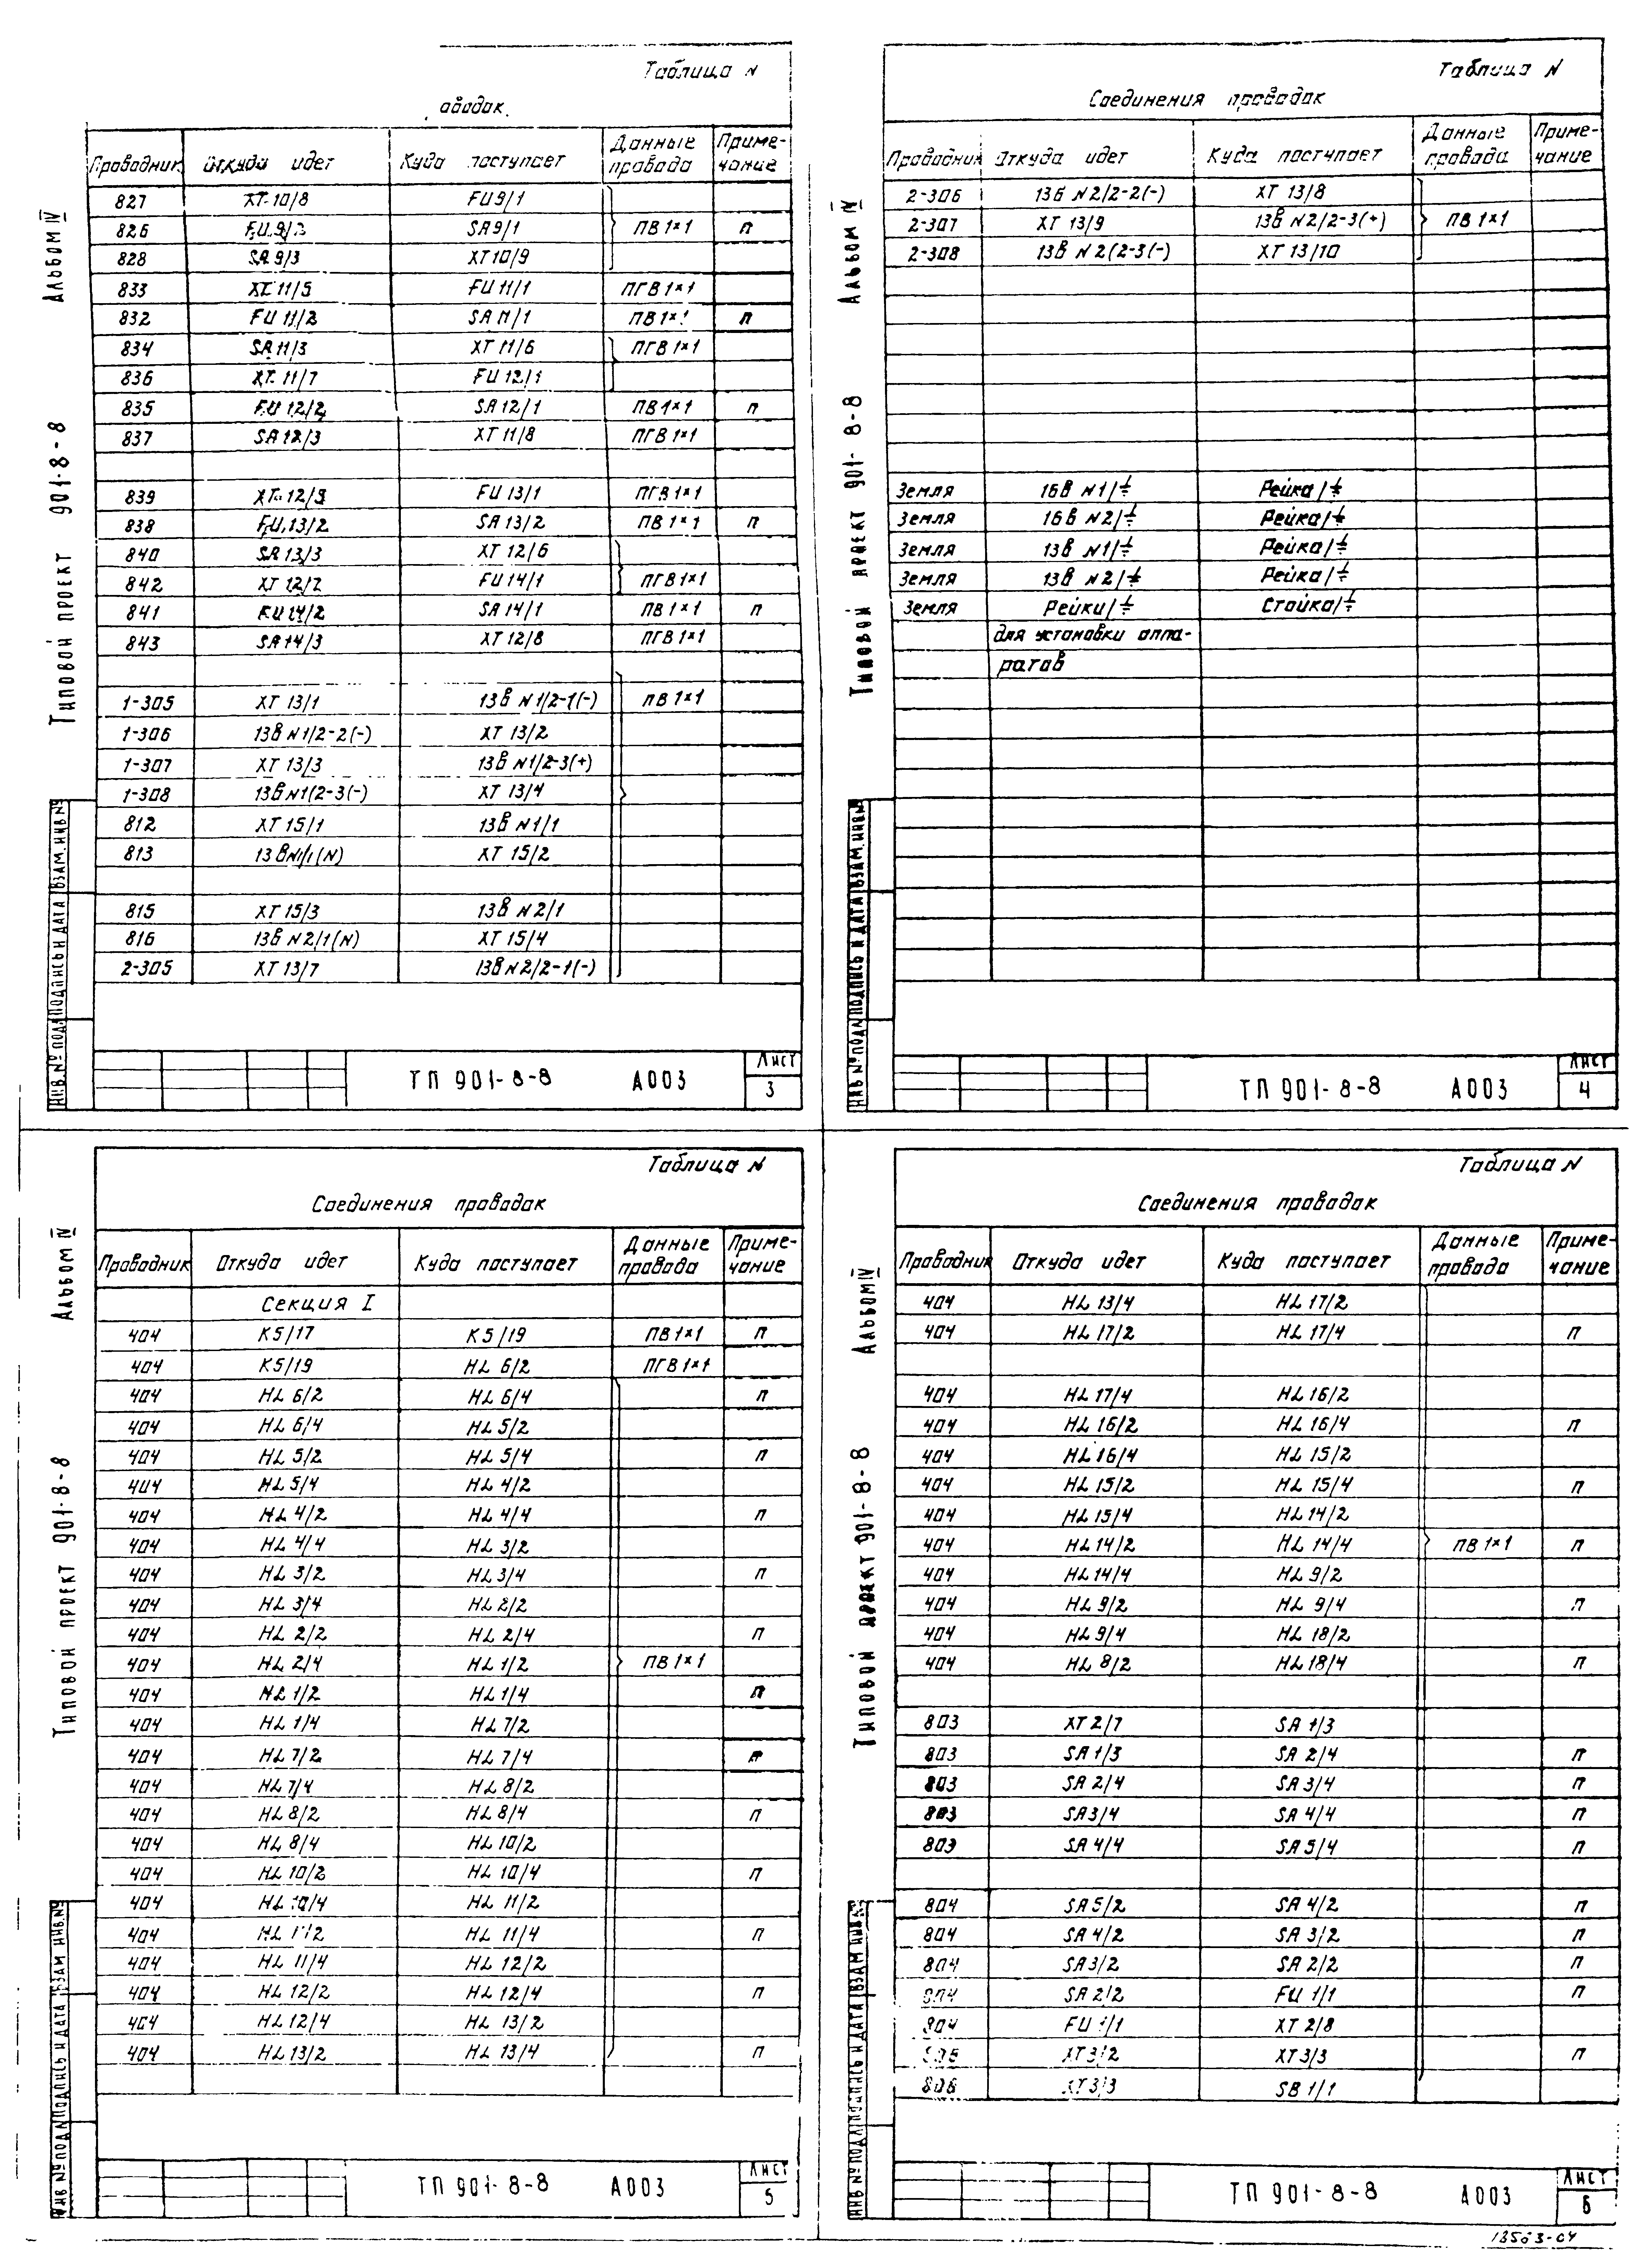 Таблица N
Проводник Откуда идет Куда поступает Данные провода Приме-чание
827 XT 10/8 FU 9/1
826 FU 9/2 SA 9/1 ПВ 1×1 п
828 SA 9/3 XT 10/9
833 XT 11/5 FU 11/1 ПГВ 1×1
832 FU 11/2 SA 11/1 ПВ 1×1 п
834 SA 11/3 XT 11/6 ПГВ 1×1
836 XT 11/7 FU 12/1
835 FU 12/2 SA 12/1 ПВ 1×1 п
837 SA 12/3 XT 11/8 ПГВ 1×1
839 XT 12/5 FU 13/1 ПГВ 1×1
838 FU 13/2 SA 13/2 ПВ 1×1 п
840 SA 13/3 XT 12/6
842 XT 12/7 FU 14/1 ПГВ 1×1
841 FU 14/2 SA 14/1 ПВ 1×1 п
843 SA 14/3 XT 12/8 ПГВ 1×1
1-305 XT 13/1 13в N1/2-1(-) ПВ 1×1
1-306 13в N1/2-2(-) XT 13/2
1-307 XT 13/3 13в N1/2-3(+)
1-308 13в N1(2-3(-) XT 13/4
812 XT 15/1 13в N1/1
813 13вN1/1(N) XT 15/2
815 XT 15/3 13в N2/1
816 13в N2/1(N) XT 15/4
2-305 XT 13/7 13в N2/2-1(-)
ТП 901-8-8 А003 Лист 3
Альбом IV
Типовой проект 901-8-8
Инв.№ подл Подпись и дата Взам.инв.№
Таблица N
Соединения проводок
Проводник Откуда идет Куда поступает Данные провода Приме-чание
2-306 13б N2/2-2(-) XT 13/8
2-307 XT 13/9 13в N2/2-3(+) ПВ 1×1
2-308 13в N2(2-3(-) XT 13/10
Земля 16в N1/⏚ Рейка/⏚
Земля 16в N2/⏚ Рейка/⏚
Земля 13в N1/⏚ Рейка/⏚
Земля 13в N2/⏚ Рейка/⏚
Земля Рейки/⏚ Стойка/⏚
для установки аппа-
ратов
ТП 901-8-8 А003 Лист 4
Альбом IV
Типовой проект 901-8-8
Инв №подл Подпись и дата Взам.инв№
Таблица N
Соединения проводок
Проводник Откуда идет Куда поступает Данные провода Приме-чание
Секция I
404 K5/17 K5/19 ПВ 1×1 п
404 K5/19 HL 6/2 ПГВ 1×1
404 HL 6/2 HL 6/4 п
404 HL 6/4 HL 5/2
404 HL 5/2 HL 5/4 п
404 HL 5/4 HL 4/2
404 HL 4/2 HL 4/4 п
404 HL 4/4 HL 3/2
404 HL 3/2 HL 3/4 п
404 HL 3/4 HL 2/2
404 HL 2/2 HL 2/4 п
404 HL 2/4 HL 1/2 ПВ 1×1
404 HL 1/2 HL 1/4 п
404 HL 1/4 HL 7/2
404 HL 7/2 HL 7/4 п
404 HL 7/4 HL 8/2
404 HL 8/2 HL 8/4 п
404 HL 8/4 HL 10/2
404 HL 10/2 HL 10/4 п
404 HL 10/4 HL 11/2
404 HL 11/2 HL 11/4 п
404 HL 11/4 HL 12/2
404 HL 12/2 HL 12/4 п
404 HL 12/4 HL 13/2
404 HL 13/2 HL 13/4 п
ТП 901-8-8 А003 Лист 5
Альбом IV
Типовой проект 901-8-8
Инв №подл Подпись и дата Взам инв.№
Таблица N
Соединения проводок
Проводник Откуда идет Куда поступает Данные провода Приме-чание
404 HL 13/4 HL 17/2
404 HL 17/2 HL 17/4 п
404 HL 17/4 HL 16/2
404 HL 16/2 HL 16/4 п
404 HL 16/4 HL 15/2
404 HL 15/2 HL 15/4 п
404 HL 15/4 HL 14/2
404 HL 14/2 HL 14/4 ПВ 1×1 п
404 HL 14/4 HL 9/2
404 HL 9/2 HL 9/4 п
404 HL 9/4 HL 18/2
404 HL 8/2 HL 18/4 п
803 XT 2/7 SA 1/3
803 SA 1/3 SA 2/4 п
803 SA 2/4 SA 3/4 п
803 SA 3/4 SA 4/4 п
803 SA 4/4 SA 5/4 п
804 SA 5/2 SA 4/2 п
804 SA 4/2 SA 3/2 п
804 SA 3/2 SA 2/2 п
804 SA 2/2 FU 1/1 п
804 FU 1/1 XT 2/8
XT 3/2 XT 3/3 п
806 XT 3/3 SB 1/1
ТП 901-8-8 А003 Лист 6
Альбом IV
Типовой проект 901-8-8
Инв №подл Подпись и дата Взам инв.№
13563-04